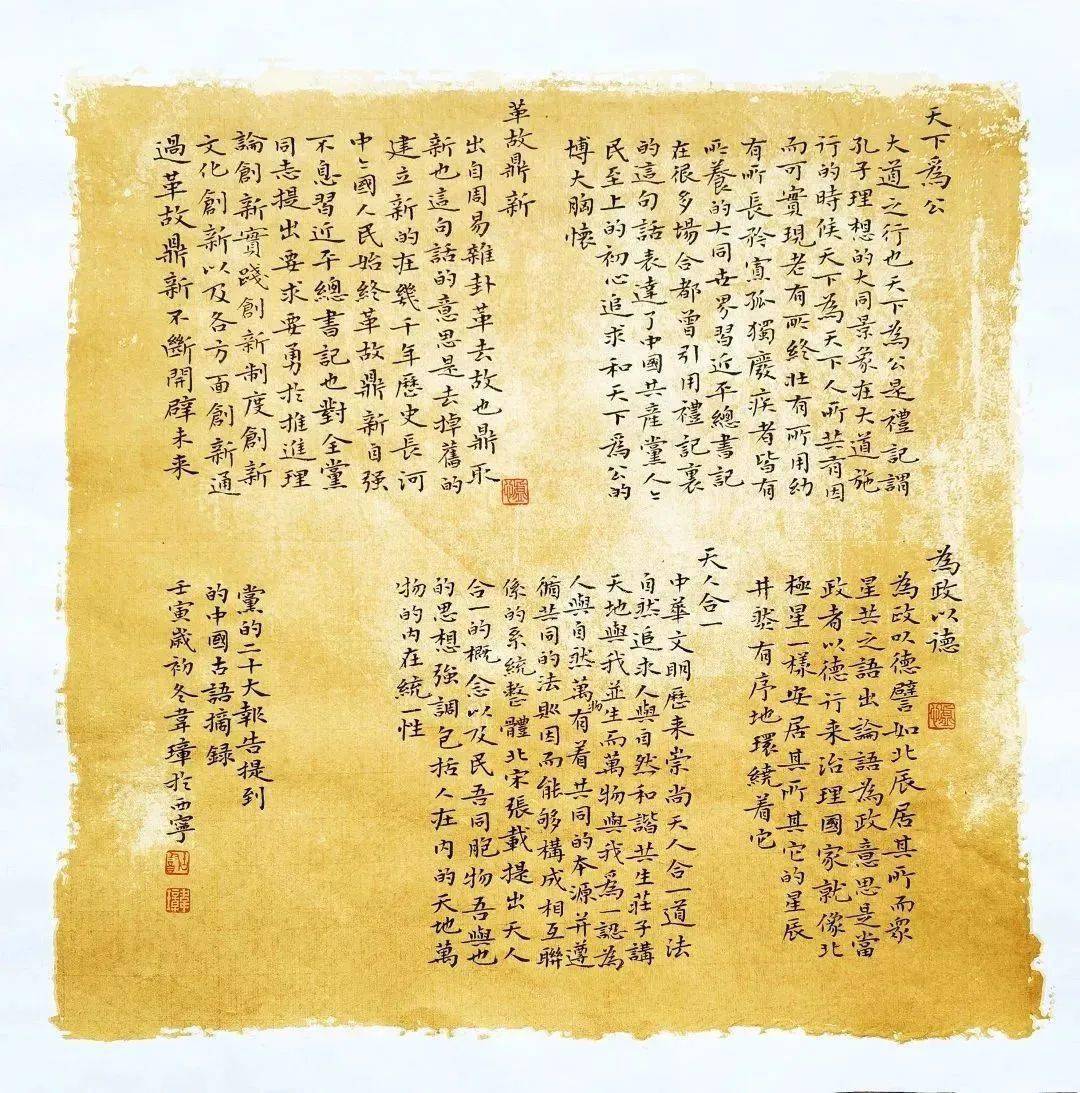 天下爲公
大道之行也天下為公是禮記謂
孔子理想的大同景象在大道施
行的時候天下為天下人所共有因
而可實現老有所終壯有所用幼
有所長矜寡孤獨廢疾者皆有
所養的大同世界習近平總書記
在很多場合都曾引用禮記裏
的這句話表達了中國共產黨人
民至上的初心追求和天下爲公的
博大胸懷
革故鼎新
出自周易雜卦革去故也鼎取
新也這句話的意思是去掉舊的
建立新的在幾千年歷史長河
中國人民始終革故鼎新自强
不息習近平總書記也對全黨
同志提出要求要勇於推進理
論創新實踐創新制度創新
文化創新以及各方面創新通
過革故鼎新不斷開辟未来
為政以德
為政以德譬如北辰居其所而衆
星共之語出論語為政意思是當
政者以德行来治理國家就像北
極星一樣安居其所其它的星辰
井然有序地環繞着它
天人合一
中華文明歷来崇尚天人合一道法
自然追求人與自然和諧共生莊子講
天地與我並生而萬物與我為一認為
人與自然萬物有着共同的本源并遵
循共同的法則因而能够構成相互聯
係的系統整體北宋張載提出天人
合一的概念以及民吾同胞物吾與也
的思想强調包括人在内的天地萬
物的内在統一性
黨的二十大報告提到
的中國古語摘録
壬寅歲初冬韋璋於西寧